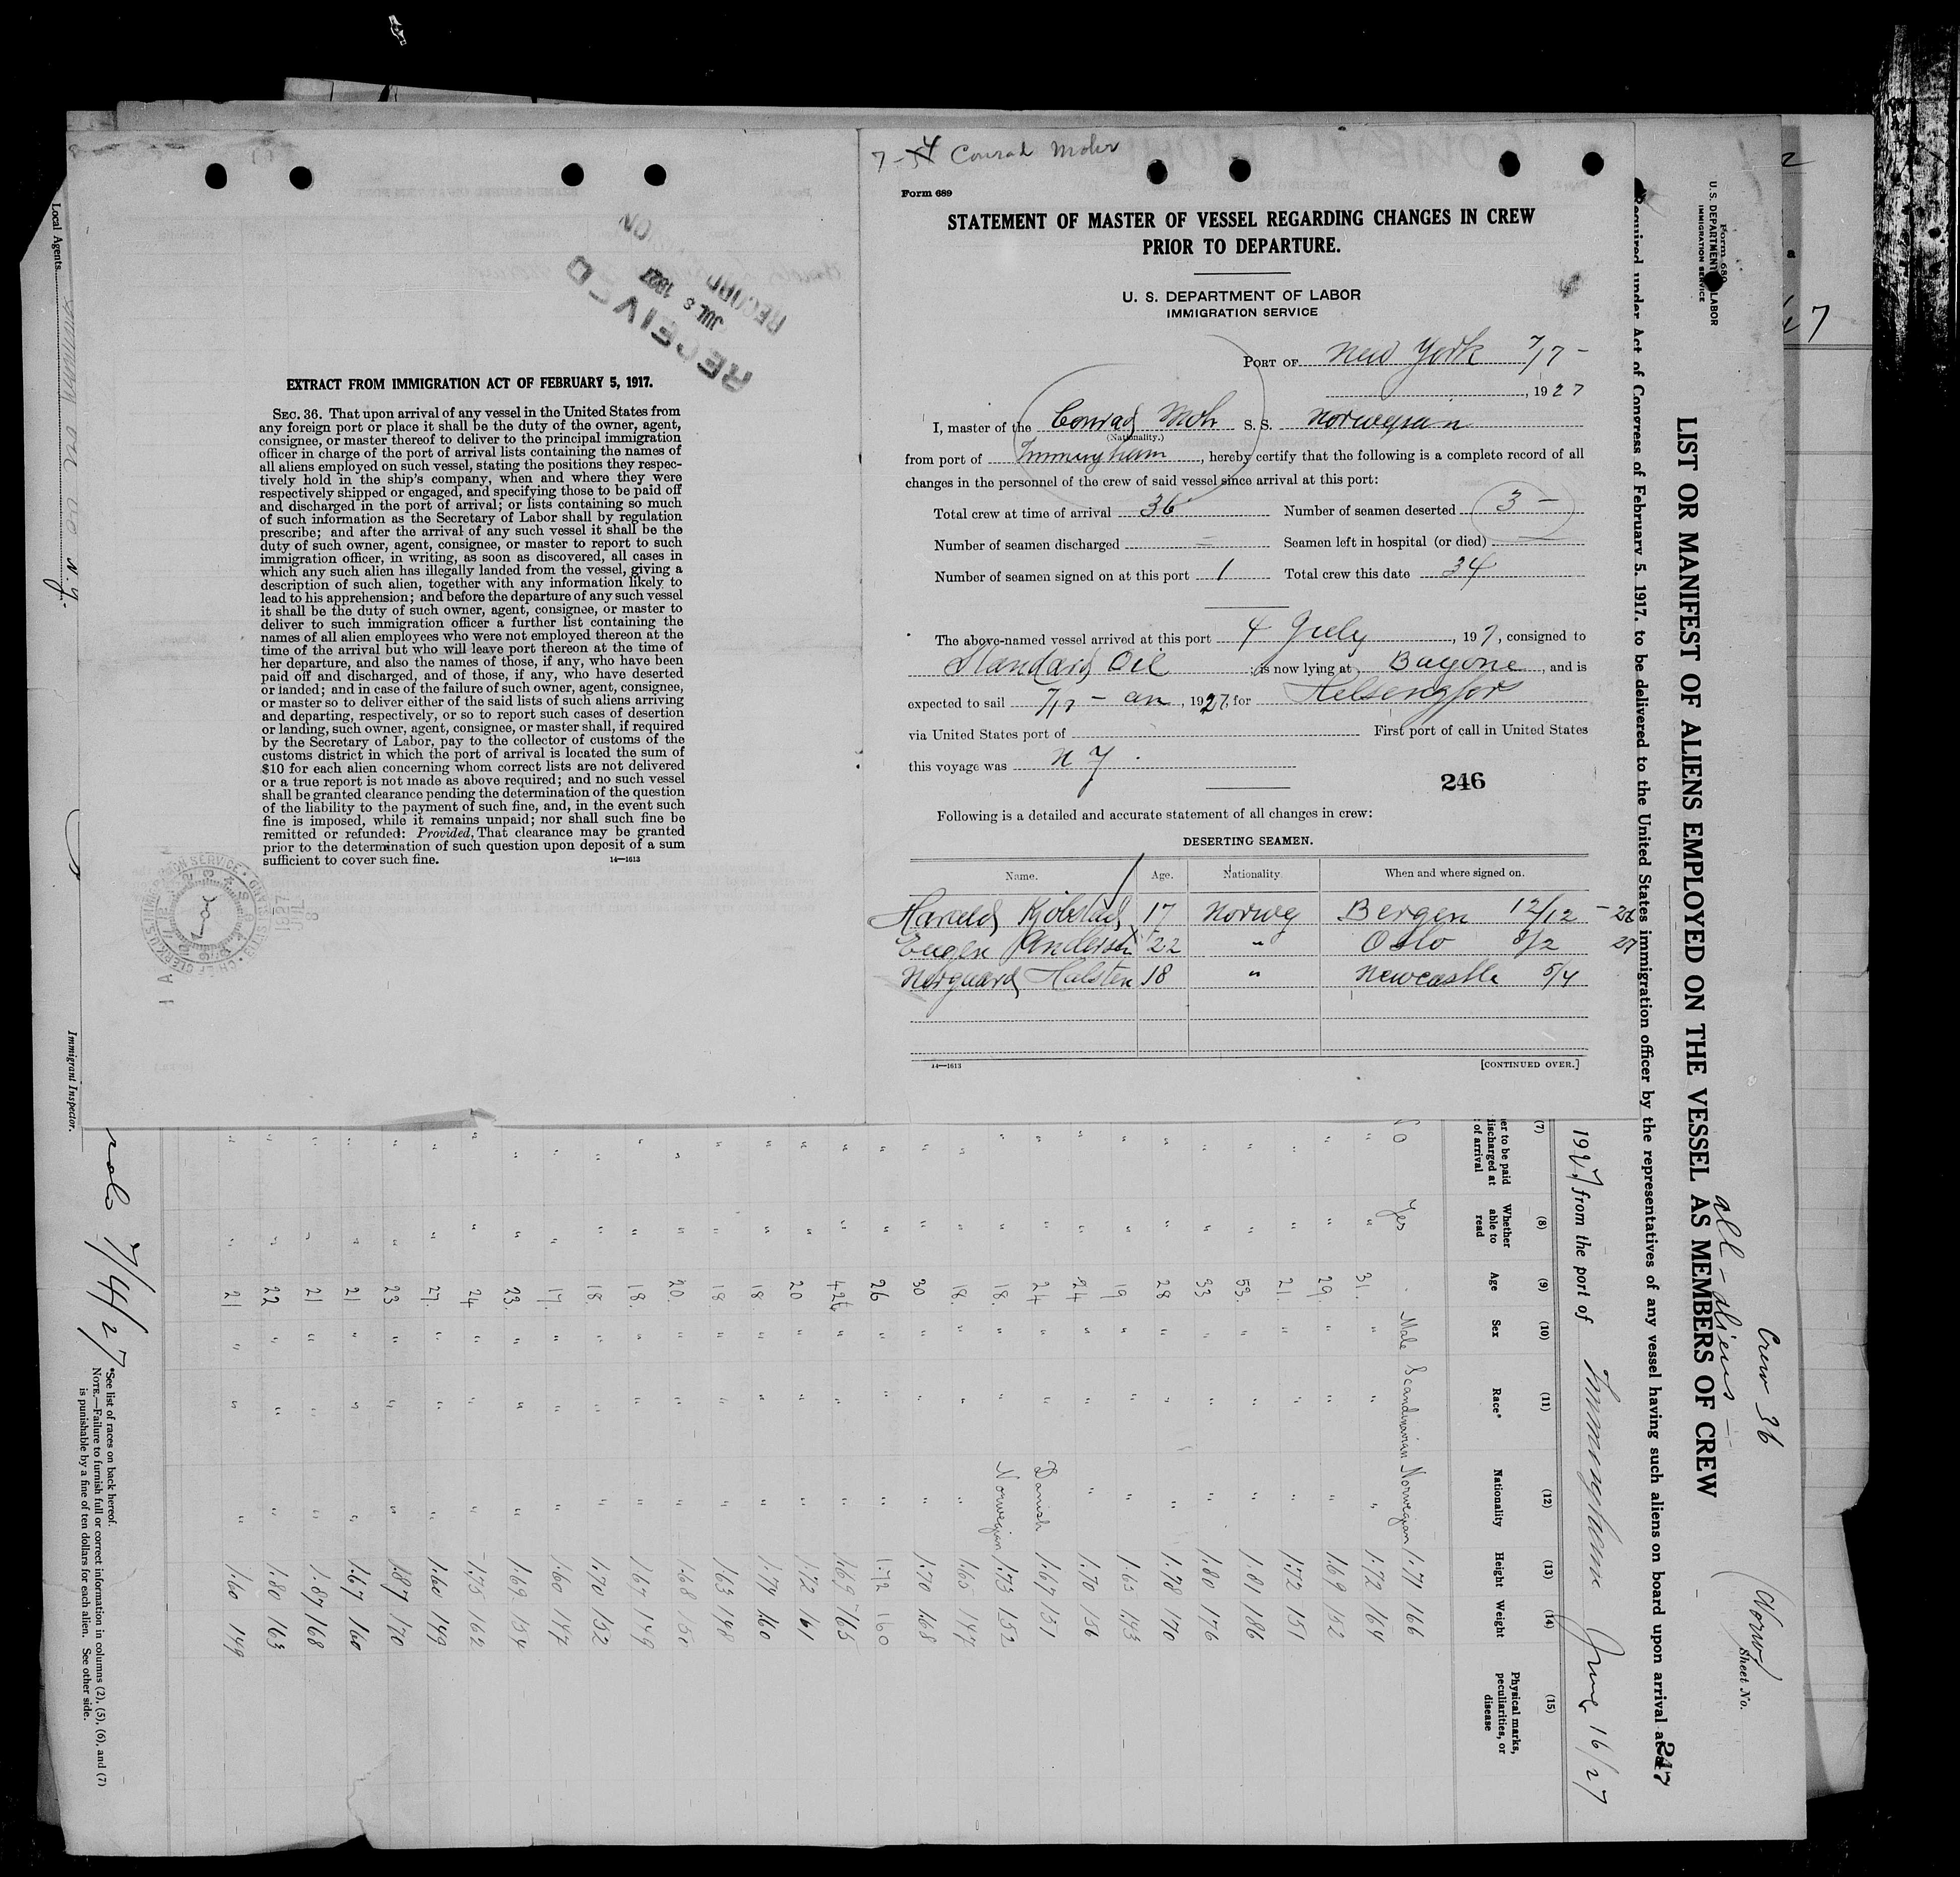 7-4 Conrad Mohr
Form 689
STATEMENT OF MASTER OF VESSEL REGARDING CHANGES IN CREW
PRIOR TO DEPARTURE.
U. S. DEPARTMENT OF LABOR
IMMIGRATION SERVICE
PORT OF New York 7/7 -
, 1927
I, master of the Conrad Moh S. S. Norwegian
(Nationality.)
from port of Immingham, hereby certify that the following is a complete record of all
changes in the personnel of the crew of said vessel since arrival at this port:
Total crew at time of arrival 36 Number of seamen deserted 3 -
Number of seamen discharged Seamen left in hospital (or died)
Number of seamen signed on at this port 1 Total crew this date 34
The above-named vessel arrived at this port 4 July, 197, consigned to
Standard Oil is now lying at Bayone, and is
expected to sail 7/7 - am, 1927, for Helsengfors
via United States port of First port of call in United States
this voyage was N Y
246
Following is a detailed and accurate statement of all changes in crew:
DESERTING SEAMEN.
Name. Age. Nationality When and where signed on.
Harald Kjobstad 17 Norweg Bergen 12/12 - 26
Eugen Andersen 22 " Oslo 8/2 27
Norguard Halsten 18 " Newcastle 5/4
14—1613 [CONTINUED OVER.]
RECEIVED
JUL 8 1927
RECORD DIVISION
EXTRACT FROM IMMIGRATION ACT OF FEBRUARY 5, 1917.
SEC. 36. That upon arrival of any vessel in the United States from
any foreign port or place it shall be the duty of the owner, agent,
consignee, or master thereof to deliver to the principal immigration
officer in charge of the port of arrival lists containing the names of
all aliens employed on such vessel, stating the positions they respec-
tively hold in the ship's company, when and where they were
respectively shipped or engaged, and specifying those to be paid off
and discharged in the port of arrival; or lists containing so much
of such information as the Secretary of Labor shall by regulation
prescribe; and after the arrival of any such vessel it shall be the
duty of such owner, agent, consignee, or master to report to such
immigration officer, in writing, as soon as discovered, all cases in
which any such alien has illegally landed from the vessel, giving a
description of such alien, together with any information likely to
lead to his apprehension; and before the departure of any such vessel
it shall be the duty of such owner, agent, consignee, or master to
deliver to such immigration officer a further list containing the
names of all alien employees who were not employed thereon at the
time of the arrival but who will leave port thereon at the time of
her departure, and also the names of those, if any, who have been
paid off and discharged, and of those, if any, who have deserted
or landed; and in case of the failure of such owner, agent, consignee,
or master so to deliver either of the said lists of such aliens arriving
and departing, respectively, or so to report such cases of desertion
or landing, such owner, agent, consignee, or master shall, if required
by the Secretary of Labor, pay to the collector of customs of the
customs district in which the port of arrival is located the sum of
$10 for each alien concerning whom correct lists are not delivered
or a true report is not made as above required; and no such vessel
shall be granted clearance pending the determination of the question
of the liability to the payment of such fine, and, in the event such
fine is imposed, while it remains unpaid; nor shall such fine be
remitted or refunded: Provided, That clearance may be granted
prior to the determination of such question upon deposit of a sum
sufficient to cover such fine.
14—1613
Local Agents
N.Y.
Immigrant Inspector.
Crew 36
all - aliens -
(Norw)
Sheet No.
Form 680
U.S. DEPARTMENT OF LABOR
IMMIGRATION SERVICE
LIST OR MANIFEST OF ALIENS EMPLOYED ON THE VESSEL AS MEMBERS OF CREW
Required under Act of Congress of February 5, 1917, to be delivered to the United States immigration officer by the representatives of any vessel having such aliens on board upon arrival at
247
1927, from the port of Immingham June 16/27
(7) (8) (9) (10) (11) (12) (13) (14) (15)
er to be paid discharged at of arrival
Whether able to read
Age
Sex
Race*
Nationality
Height
Weight
Physical marks, peculiarities, or disease
No Yes Male Scandinavian Norwegian 1.71 166
" " 31. " " " 1.72 164
" " 29. " " " 1.69 152
" " 21. " " " 1.72 151
" " 53. " " " 1.81 186
" " 33 " " " 1.80 176
" " 28 " " " 1.78 170
" " 19 " " " 1.63 143
" " 24 " " " 1.70 156
" " 24 " " Danish 1.67 151
" " 18. " " Norwegian 1.73 152
" " 18. " " " 1.65 147
" " 30 " " " 1.70 168
" " 26 " " " 1.72 160
" " 26 " " " 1.69 165
" " 20 " " " 1.72 161
" " 18 " " " 1.79 160
" " 18 " " " 1.63 148
" " 20. " " " 1.68 150
" " 18. " " " 1.67 149
" " 18. " " " 1.70 152
" " 17. " " " 1.60 147
" " 23. " " " 1.69 154
" " 24 " " " 1.75 162
" " 27. " " " 1.60 149
" " 23 " " " 1.87 170
" " 21 " " " 1.67 160
" " 21 " " " 1.87 168
" " 22 " " " 1.80 163
" " 21 " " " 1.60 149
7/4/27
*See list of races on back hereof.
NOTE.—Failure to furnish full or correct information in columns (2), (5), (6), and (7)
is punishable by a fine of ten dollars for each alien. See other side.